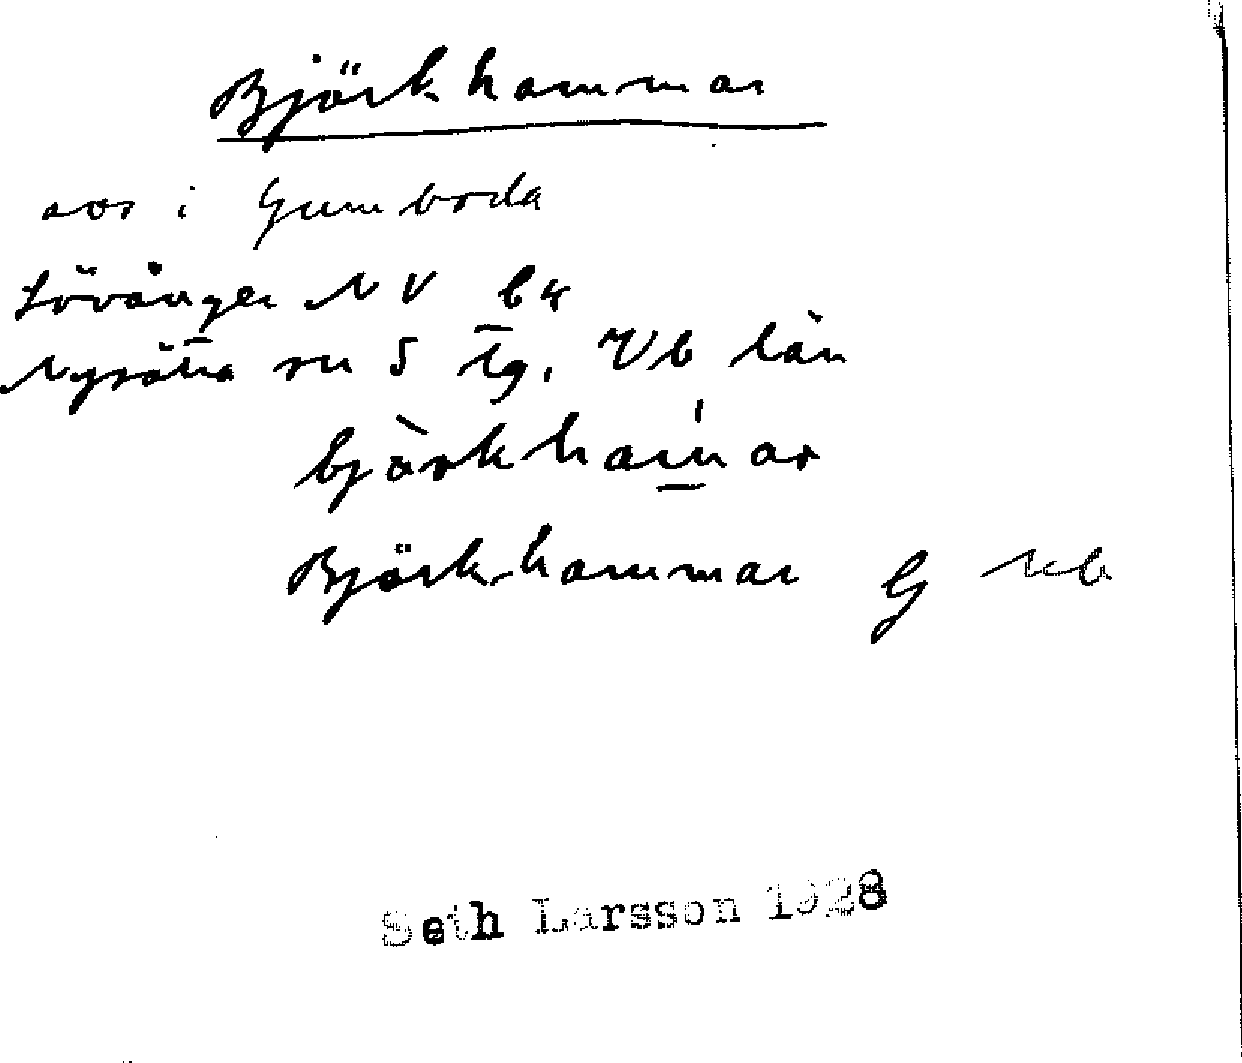 Björkhammar
avs i Gumboda
Lövånger NV bq
Nysätra sn S Tg. Vb län
björkham̄ar
Björkhammar G kb
Seth Larsson 1928